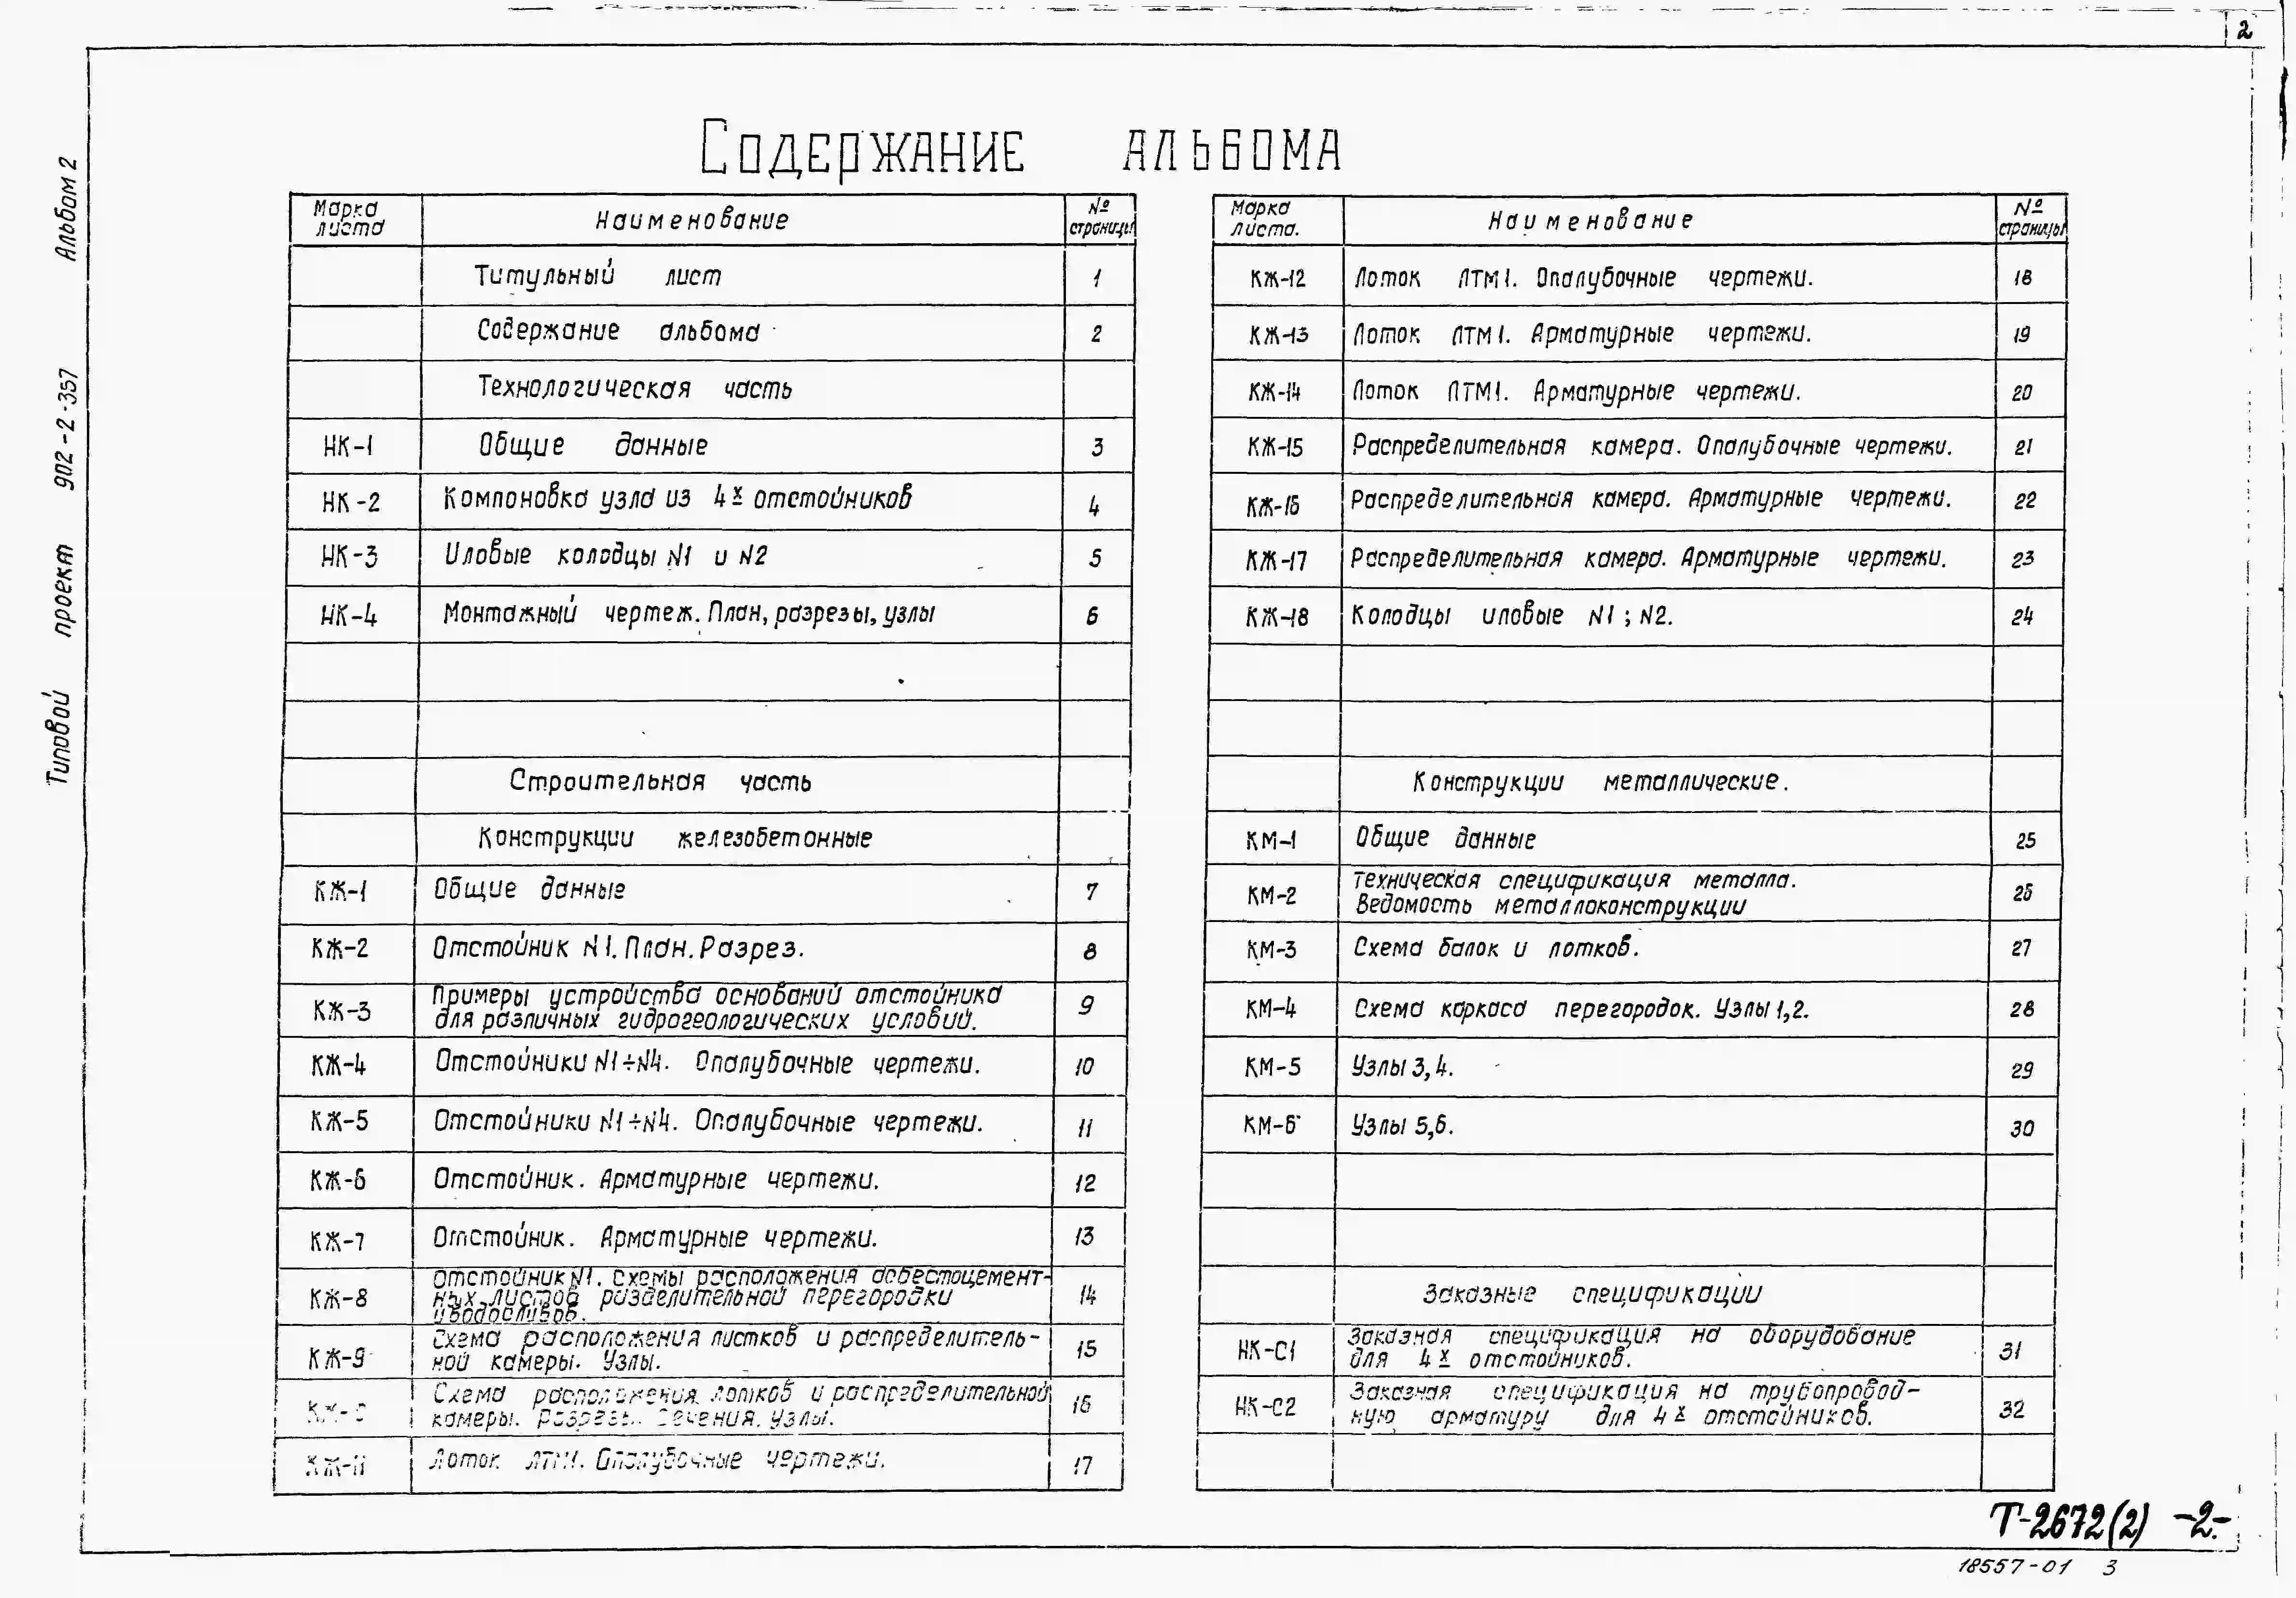 2
Типовой проект 902-2-357 Альбом 2
Содержание альбома
Марка листа Наименование № страницы
Титульный лист 1
Содержание альбома 2
Технологическая часть
НК-1 Общие данные 3
НК-2 Компоновка узла из 4х отстойников 4
НК-3 Иловые колодцы N1 и N2 5
НК-4 Монтажный чертеж. План, разрезы, узлы 6
Строительная часть
Конструкции железобетонные
КЖ-1 Общие данные 7
КЖ-2 Отстойник N1. План. Разрез. 8
КЖ-3 Примеры устройства оснований отстойника
для различных гидрогеологических условий. 9
КЖ-4 Отстойники N1÷N4. Опалубочные чертежи. 10
КЖ-5 Отстойники N1÷N4. Опалубочные чертежи. 11
КЖ-6 Отстойник. Арматурные чертежи. 12
КЖ-7 Отстойник. Арматурные чертежи. 13
КЖ-8 Отстойник N1. Схемы расположения асбестоцемент-
ных листов разделительной перегородки
и водосливов. 14
КЖ-9 Схема расположения листков и распределитель-
ной камеры. Узлы. 15
Схема расположения лотков и распределительной
камеры. Разрезы. Сечения. Узлы. 16
КЖ-11 Лоток ЛТМ1. Опалубочные чертежи. 17
Марка листа. Наименование № страницы
КЖ-12 Лоток ЛТМ1. Опалубочные чертежи. 18
КЖ-13 Лоток ЛТМ1. Арматурные чертежи. 19
КЖ-14 Лоток ЛТМ1. Арматурные чертежи. 20
КЖ-15 Распределительная камера. Опалубочные чертежи. 21
КЖ-16 Распределительная камера. Арматурные чертежи. 22
КЖ-17 Распределительная камера. Арматурные чертежи. 23
КЖ-18 Колодцы иловые N1; N2. 24
Конструкции металлические.
КМ-1 Общие данные 25
КМ-2 Техническая спецификация металла.
Ведомость металлоконструкции 26
КМ-3 Схема балок и лотков. 27
КМ-4 Схема каркаса перегородок. Узлы 1,2. 28
КМ-5 Узлы 3,4. 29
КМ-6 Узлы 5,6. 30
Заказные спецификации
НК-С1 Заказная спецификация на оборудование
для 4х отстойников. 31
НК-С2 Заказная спецификация на трубопровод-
ную арматуру для 4х отстойников. 32
Т-2672(2) -2-
18557-01 3